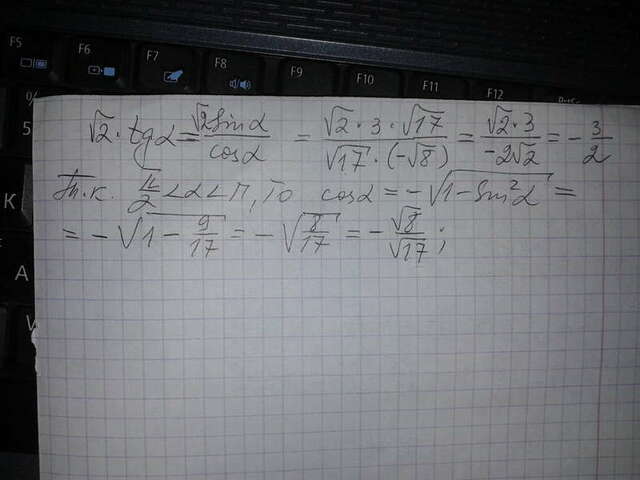 F5 F6 F7 F8 F9 F10 F11 F12
%
5
K
A
√2 · tgα = √2 sinα / cosα = √2 · 3 · √17 / √17 · (-√8) = √2 · 3 / -2√2 = - 3/2
Т.к. π/2 < α < π, то cosα = -√(1 - sin²α) =
= -√(1 - 9/17) = -√(8/17) = - √8/√17 ;